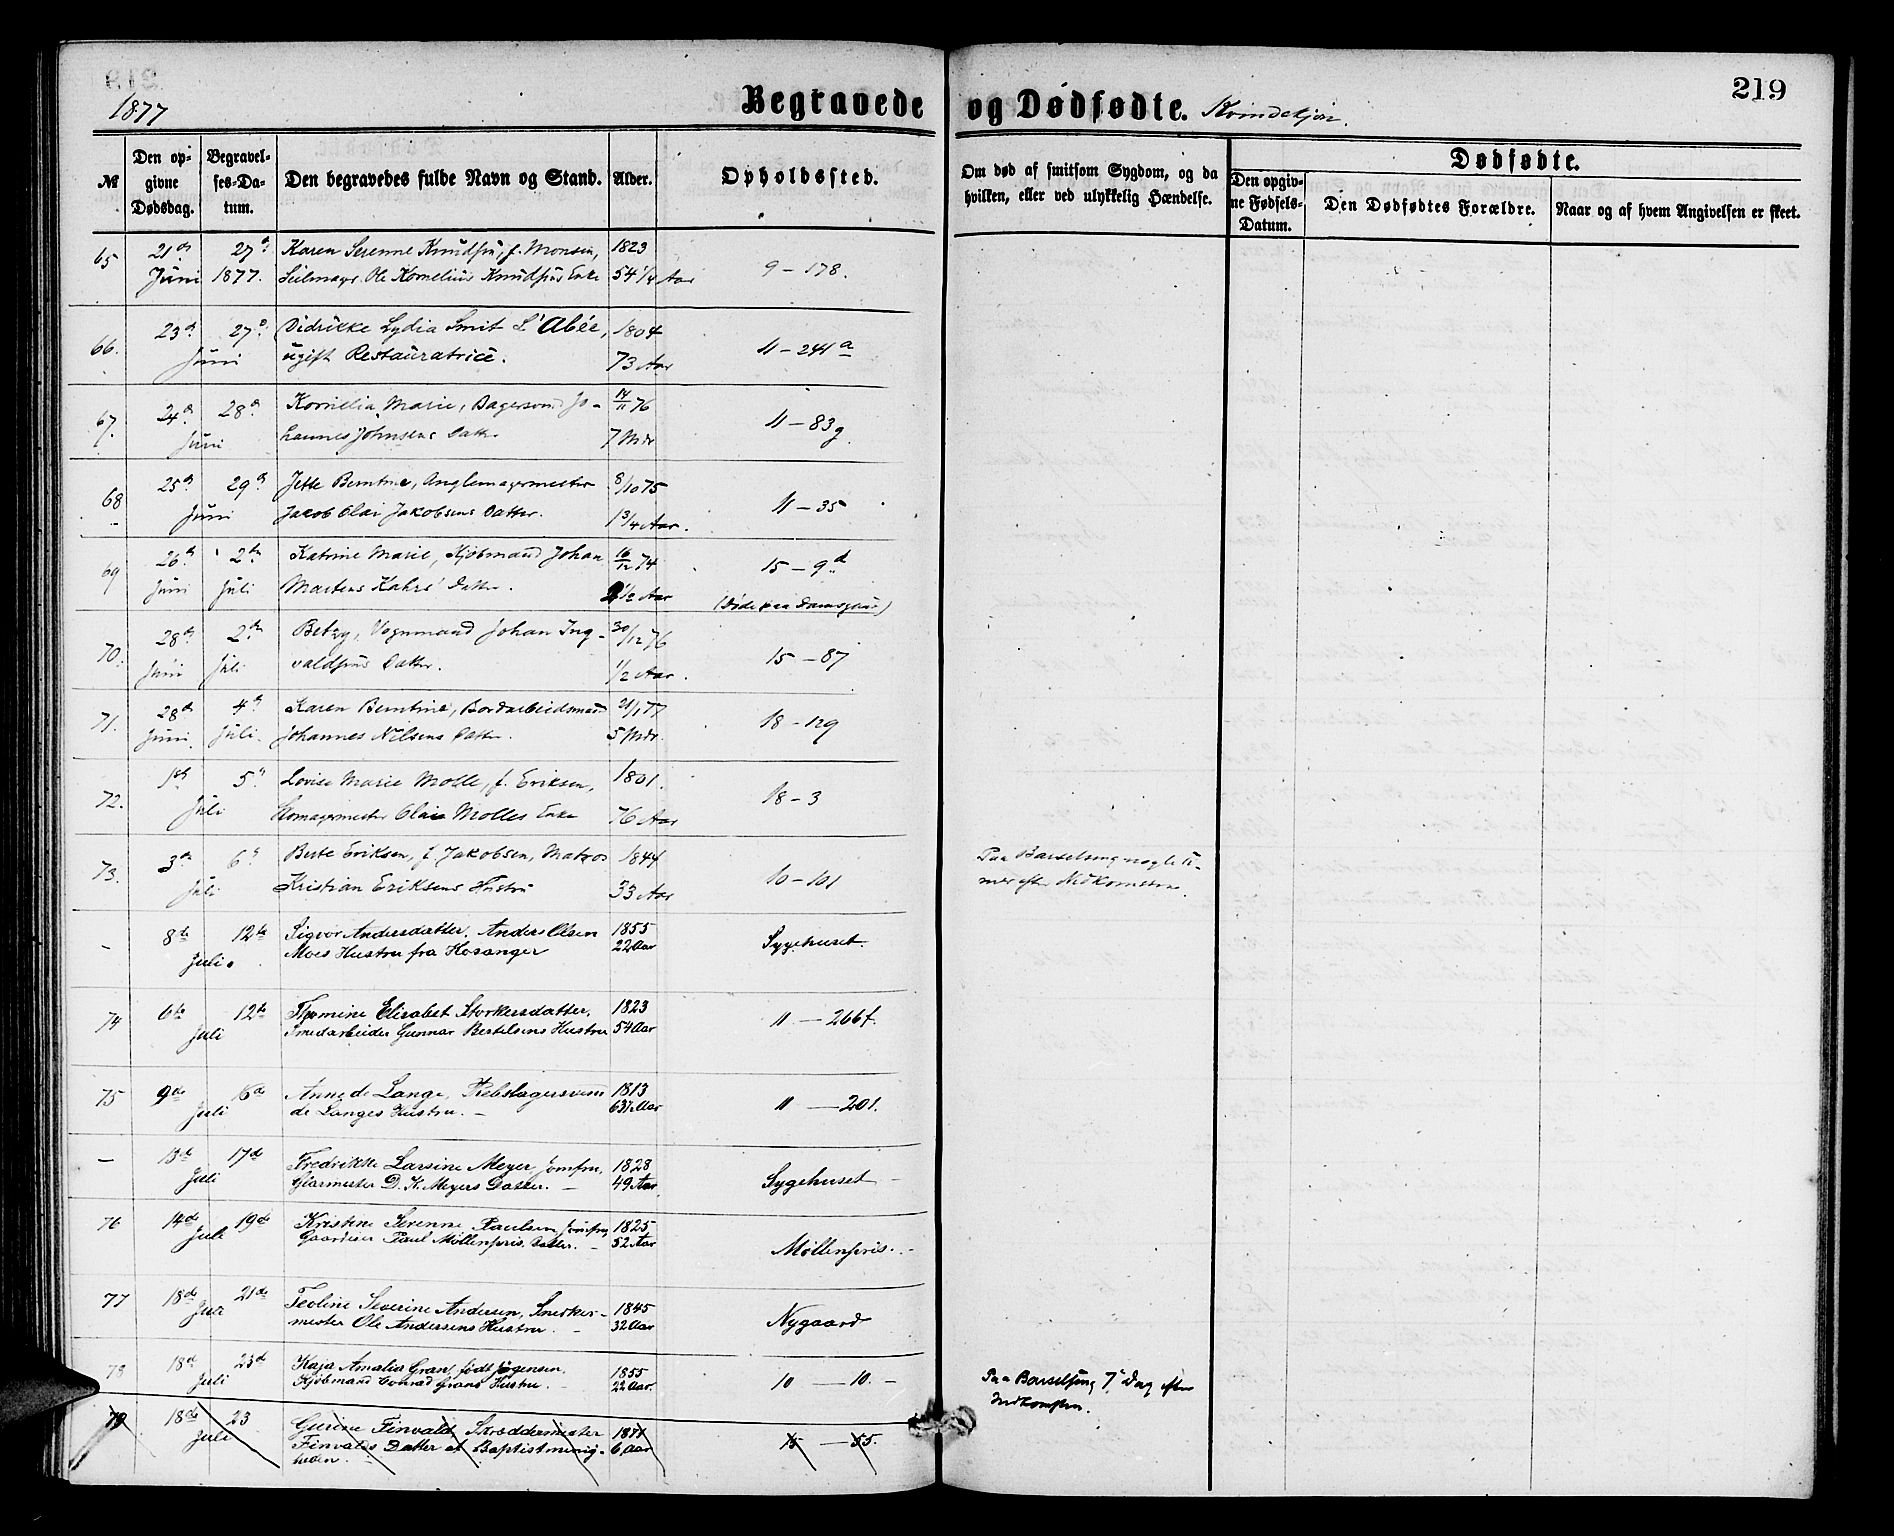 1877
Begravede og Dødfødte. Kvindekjøn.
219
№
Den op-
givne
Dødsdag.
Begravel-
ses-Da-
tum.
Den begravedes fulde Navn og Stand.
Alder.
Opholdssted.
Om død af smitsom Sygdom, og da
hvilken, eller ved ulykkelig Hændelse.
Dødfødte.
Den opgiv-
ne Fødsels-
Datum.
Den Dødfødtes Forældre.
Naar og af hvem Angivelsen er skeet.
65 21de 27de Karen Serenne Knudsen, f. Monsen, 1823
Juni 1877. Seilmager Ole Kornelius Knudsens Enke 54 1/4 Aar 9 – 178.
66. 23de 27de Didrikke Lydia Smit L'Abée, 1804
Juni ugift Restauratrice. 73 Aar 11 – 241a
67. 24de 28de Kornelia Marie, Bagersvend Jo- 14/11 76
Juni hannes Johnsens Datter 7 Mdr 11 – 83g.
68 25de 29de Jette Berntine, Anglemagermester 8/10 75
Juni Jakob Olai Jakobsens Datter. 1 3/4 Aar. 11 – 35
69 26de 2den Katrine Marie, Kjøbmand Johan 16/12 74
Juni Juli Martens Kahrs' Datter. 2 1/2 Aar 15 – 9d
(Døde paa Damsgaar)
70. 28de 2den Betzy, Vognmand Johan Ing- 30/12 76
Juni Juli valdsens Datter. 1/2 Aar. 15 – 87
71. 28de 4de Karen Berntine, Bordarbeidsmand 21/1 77
Juni Juli Johannes Nilsens Datter. 5 Mdr. 18 – 129
72. 1ste 5te Lovise Marie Molle, f. Eriksen, 1801.
Juli Skomagermester Olai Molles Enke 76 Aar 18 – 3
73. 3die 6te Berte Eriksen, f. Jakobsen, Matros 1844
Juli Kristian Eriksens Hustru 33 Aar 10 – 101
Paa Barselseng nogle Ti-
mer efter Nedkomsten.
– 8de 12te Sigvor Andersdatter, Anders Olsen 1855
Juli. Moes Hustru fra Hosanger 22 Aar Sygehuset.
74 6te 12te Thomine Elisabet Storkersdatter, 1823
Juli Smedarbeider Gunnar Bertelsens Hustru 54 Aar 11 – 266f.
75 9de 16de Anne de Lange, Rebslagersvend 1813
Juli de Langes Hustru. – 63 1/2 Aar 11 – 201.
– 13de 17de Fredrikke Larsine Meyer, Jomfru, 1828
Juli D. K. Meyers Datter. – 49 Aar. Sygehuset –
76 14de 19de Kristine Serenne Paulsen, Jomfru 1825
Juli Gaardeier Paul Møllenpris Datter. – 52 Aar Møllenpris. –
77 18de 21de Teoline Severine Andersen, Snedker- 1845
Juli mester Ole Andersens Hustru. – 32 Aar Nygaard
78 18de 23de Kaja Amalia Gran, født Jørgensen, 1855
Juli Kjøbmand Conrad Grans Hustru. – 22 Aar. 10 – 10. –
Paa Barselseng 7de Dag efter
Nedkomsten.
79 18de 23 Gurine Finvald, Skræddermester 1871
Juli Finvalds Datter af Baptistmenig- 6 Aar 15 – 55.
heden. –